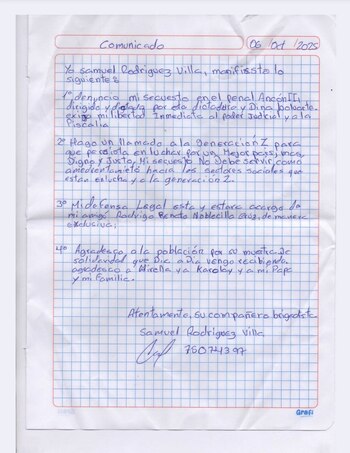 Comunicado
06 Oct 2025
Yo Samuel Rodriguez Villa, manifiesto lo
siguiente:
1º denuncio mi secuestro en el penal Ancón II,
dirigido por esta dictadora Dina boluarte
exijo mi libertad Inmediata al poder Judicial y a la
Fiscalia
2º Hago un llamado a la Generación Z para
que persista en luchar por un Mejor país, mas
Digno y Justo, Mi secuestro No Debe servir como
amedrentamiento hacia los sectores sociales que
estan en lucha y a la generación Z.
3º Mi defensa Legal esta y estara acargo de
mi amigo Rodrigo Noblecilla Cruz, de manera
exclusiva;
4º Agradesco a la población por su muestra de
solidaridad que Dia a Dia vengo recibiendo
agradesco a Mirella y a Karoley y a mi Papa
y mi Familia.
Atentamente, su compañero brigadista
Samuel Rodriguez Villa
75074397
Grafi